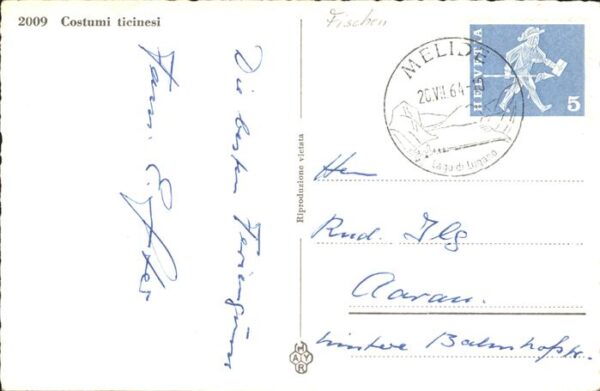 2009 Costumi ticinesi
Die besten Feriengrüsse
Fam.
Riproduzione vietata
Fischen
MELIDE
20.VII.64
Lago di Lugano
HELVETIA
5
Herr
Rud. Ilg
Aarau.
hintere Bahnhofstr.
MAYR